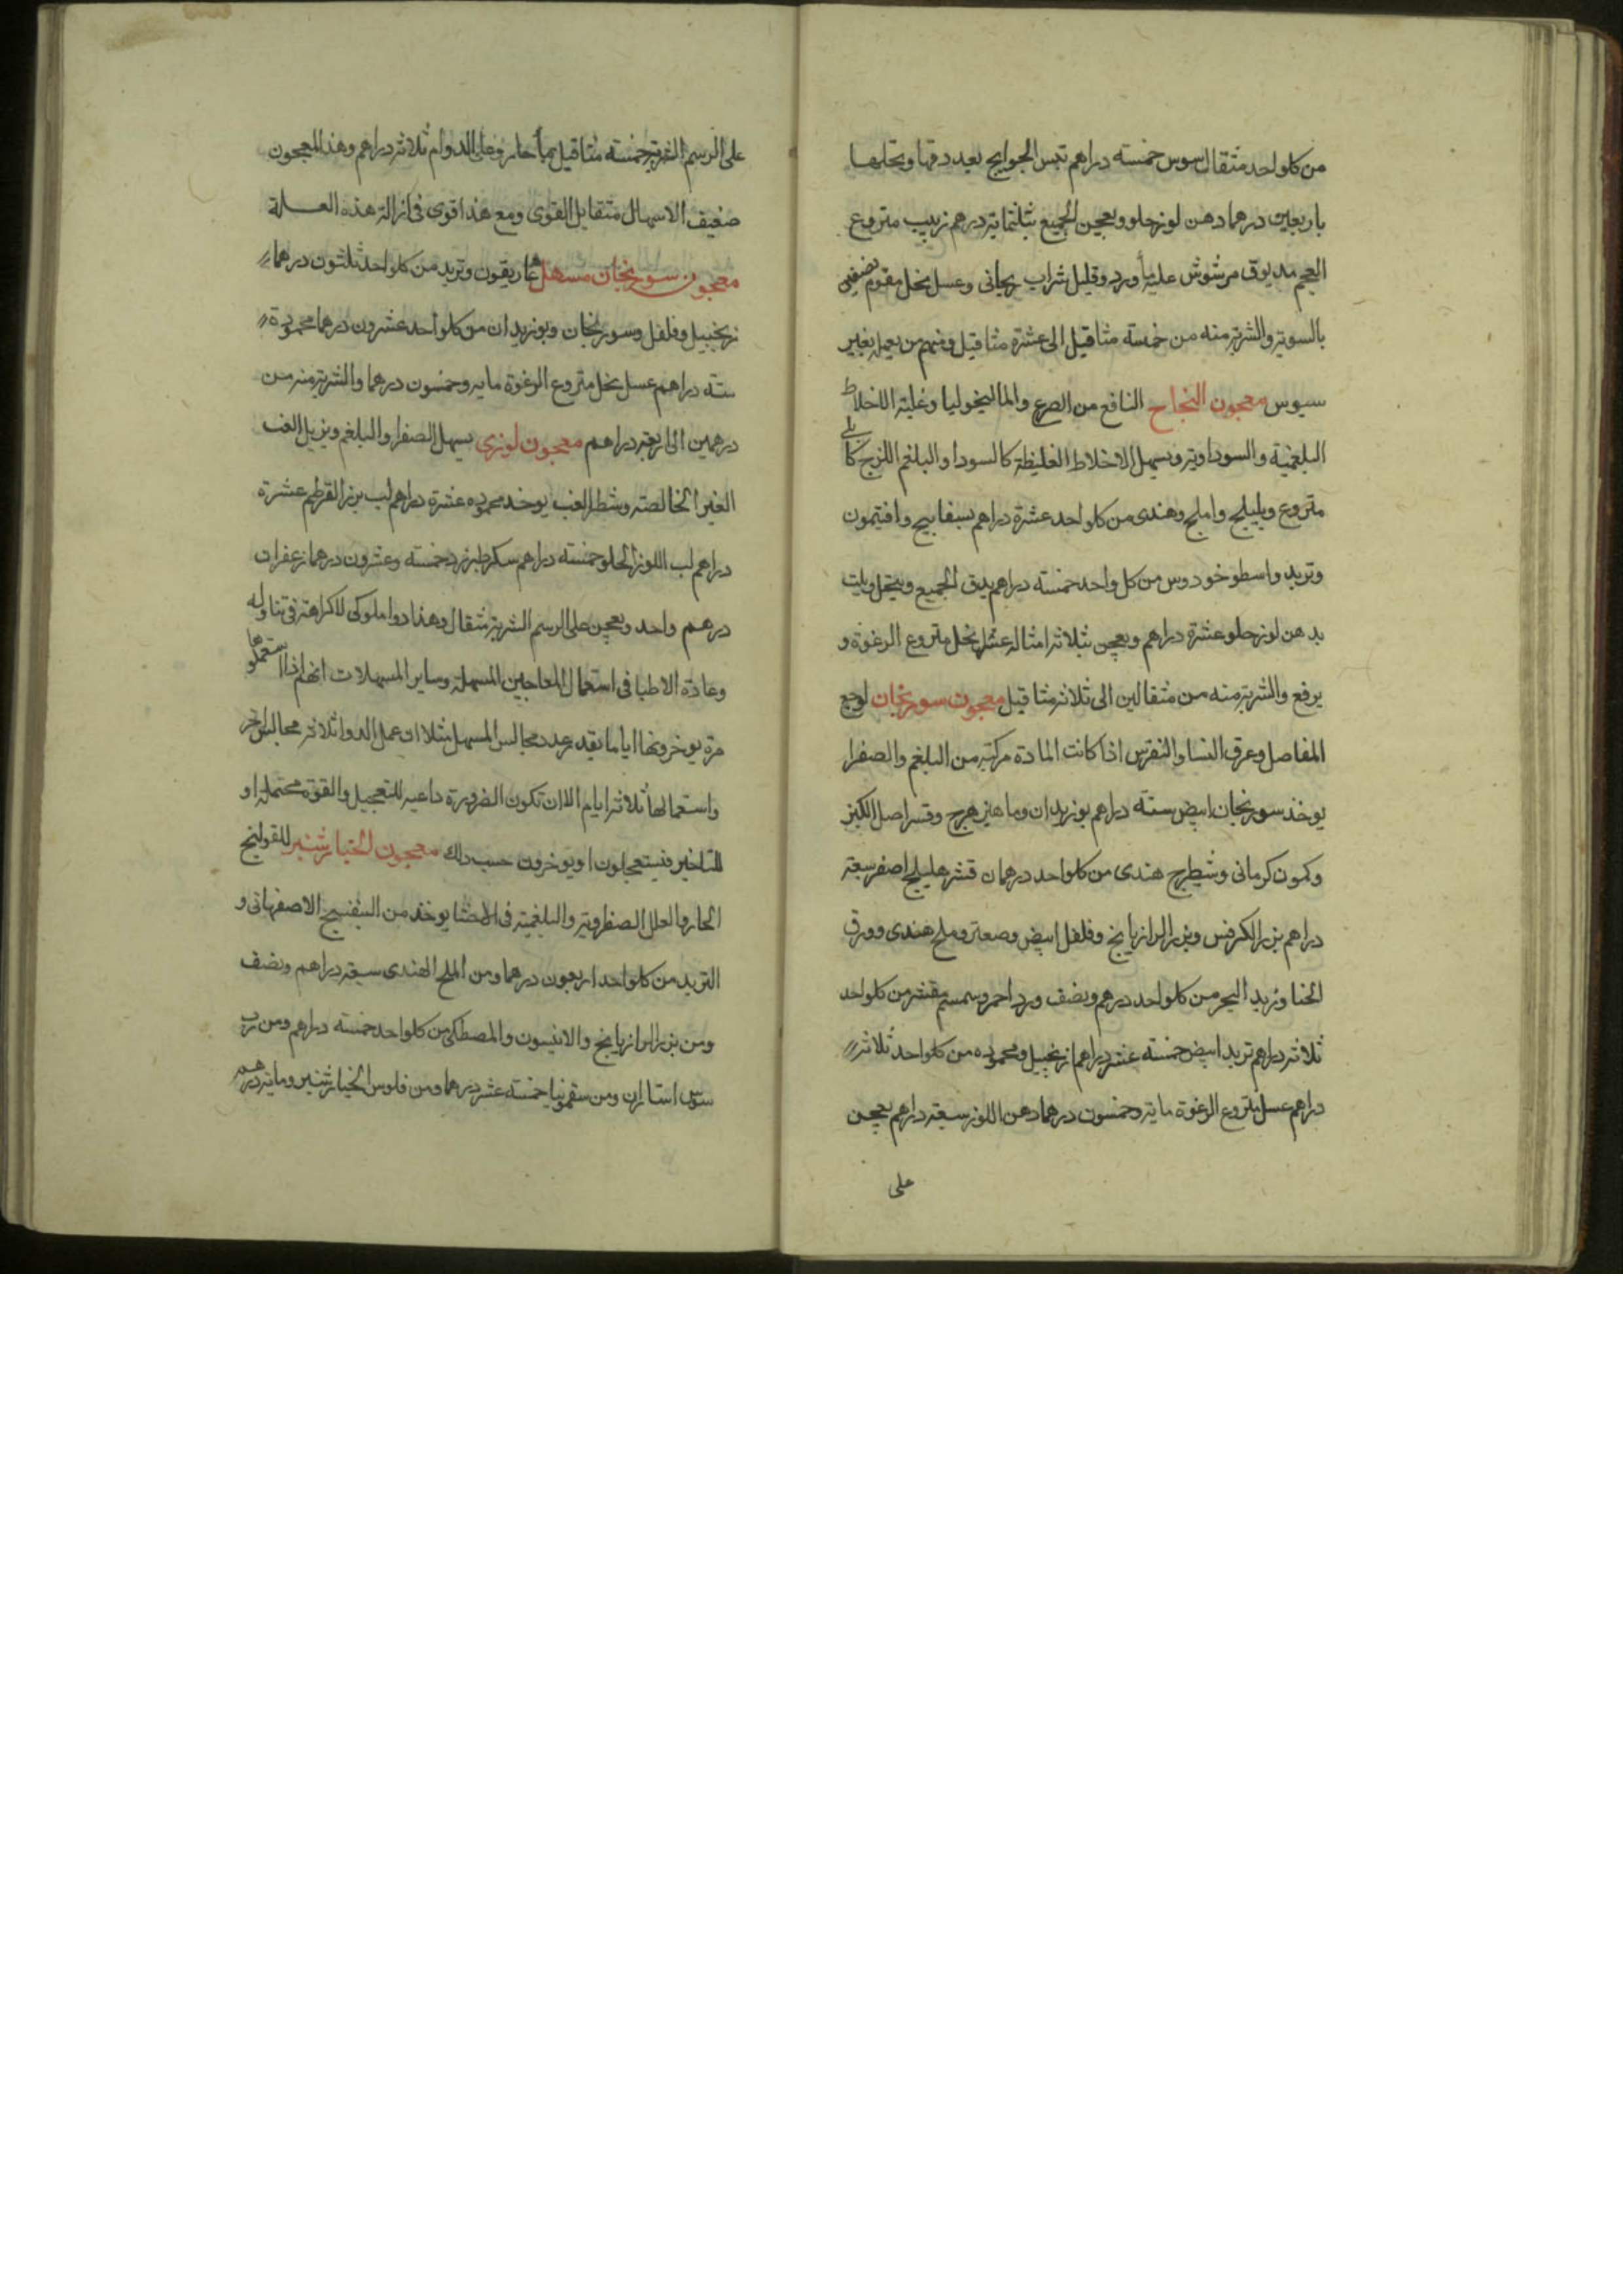 من كل واحد مثقال سوس خمسته دراهم تبس الحوايج بعد دقها ونخلها
باربعين درهما دهن لوز حلو ويعجن الجميع بثلثماية درهم زبيب منزوع
العجم مدقوق مرشوش عليه ماء ورد وقليل شراب ريحاني وعسل نحل مقوم نصفين
بالسوية والشربة منه من خمسة مثاقيل الى عشرة مثاقيل ومنهم من يعمله بغير
سوس معجون النجاح النافع من الصرع والماليخوليا وغلبة الاخلاط
البلغمية والسوداوية ويسهل الاخلاط الغليظة كالسودا والبلغم اللزج كابلي
منزوع وبليلج واملج وهندي من كل واحد عشرة دراهم بسفايج وافتيمون
وتربد واسطوخودوس من كل واحد خمسته دراهم يدق الجميع وينخل ويلت
بدهن لوز حلو عشرة دراهم ويعجن بثلاثة امثاله عسل نحل منزوع الرغوة و
يرفع والشربة منه من مثقالين الى ثلاثة مثاقيل معجون سورنجان لوجع
المفاصل وعرق النسا والنقرس اذا كانت المادة مركبة من البلغم والصفرا
يوخذ سورنجان ابيض ستة دراهم بوزيدان وماهيزهرج وقشر اصل الكبر
وكمون كرماني وشيطرج هندي من كل واحد درهمان قشر هليلج اصفر سبعة
دراهم بزر الكرفس وبزر الرازيانج وفلفل ابيض وصعتر وملح هندي وورق
الحنا وزبد البحر من كل واحد درهم ونصف ورد احمر وسمسم مقشر من كل واحد
ثلاثة دراهم تربد ابيض خمسته عشر دراهما زنجبيل ومحموده من كل واحد ثلاثة
دراهم عسل منزوع الرغوة ماية وخمسون درهما دهن اللوز سبعة دراهم يعجن
على
على الرسم الشربة خمسته مثاقيل بماء حار وعلى الدوام ثلاثة دراهم وهذا المعجون
ضعيف الاسهال متقابل القوى ومع هذا قوي في ازالة هذه العلة
معجون سورنجان مسهل غاريقون وتربد من كل واحد ثلثون درهما
زنجبيل وفلفل وسورنجان وبوزيدان من كل واحد عشرون درهما محمودة
ستة دراهم عسل نحل منزوع الرغوة مايه وخمسون درهما والشربة منه من
درهمين الى اربعة دراهم معجون لوزي يسهل الصفرا والبلغم ويزيل الغب
الغير الخالصة وشطر الغب يوخذ محموده عشرة دراهم لب بزر القرطم عشرة
دراهم لب اللوز الحلو خمسته دراهم سكر طبرزد خمسته وعشرون درهما زعفران
درهم واحد ويعجن على الرسم الشربة مثقال وهذا دوا ملوكي لا كراهة في تناوله
وعادة الاطبا في استعمال المعاجين المسهلة وساير المسهلات انهم اذا استعملوها
مرة يوخرونها اياما بقدر عدد مجالس المسهل مثلا ان عمل الدوا ثلاثة مجالس اخر
واستعمالها ثلاثة ايام الا ان تكون الضرورة داعيه للتعجيل والقوة محتملة او
للتاخير فيستعجلون او يوخرون حسب ذلك معجون الخيارشنبر للقولنج
الحار والعلل الصفراوية والبلغمية في الاحشا يوخذ من البنفسج الاصفهاني و
التربد من كل واحد اربعون درهما ومن الملح الهندي سبعة دراهم ونصف
ومن بزر الرازيانج والانيسون والمصطكي من كل واحد خمسته دراهم ومن رب
سوس استاران ومن سقمونيا خمسته عشر درهما ومن فلوس الخيارشنبر ومايه درهم